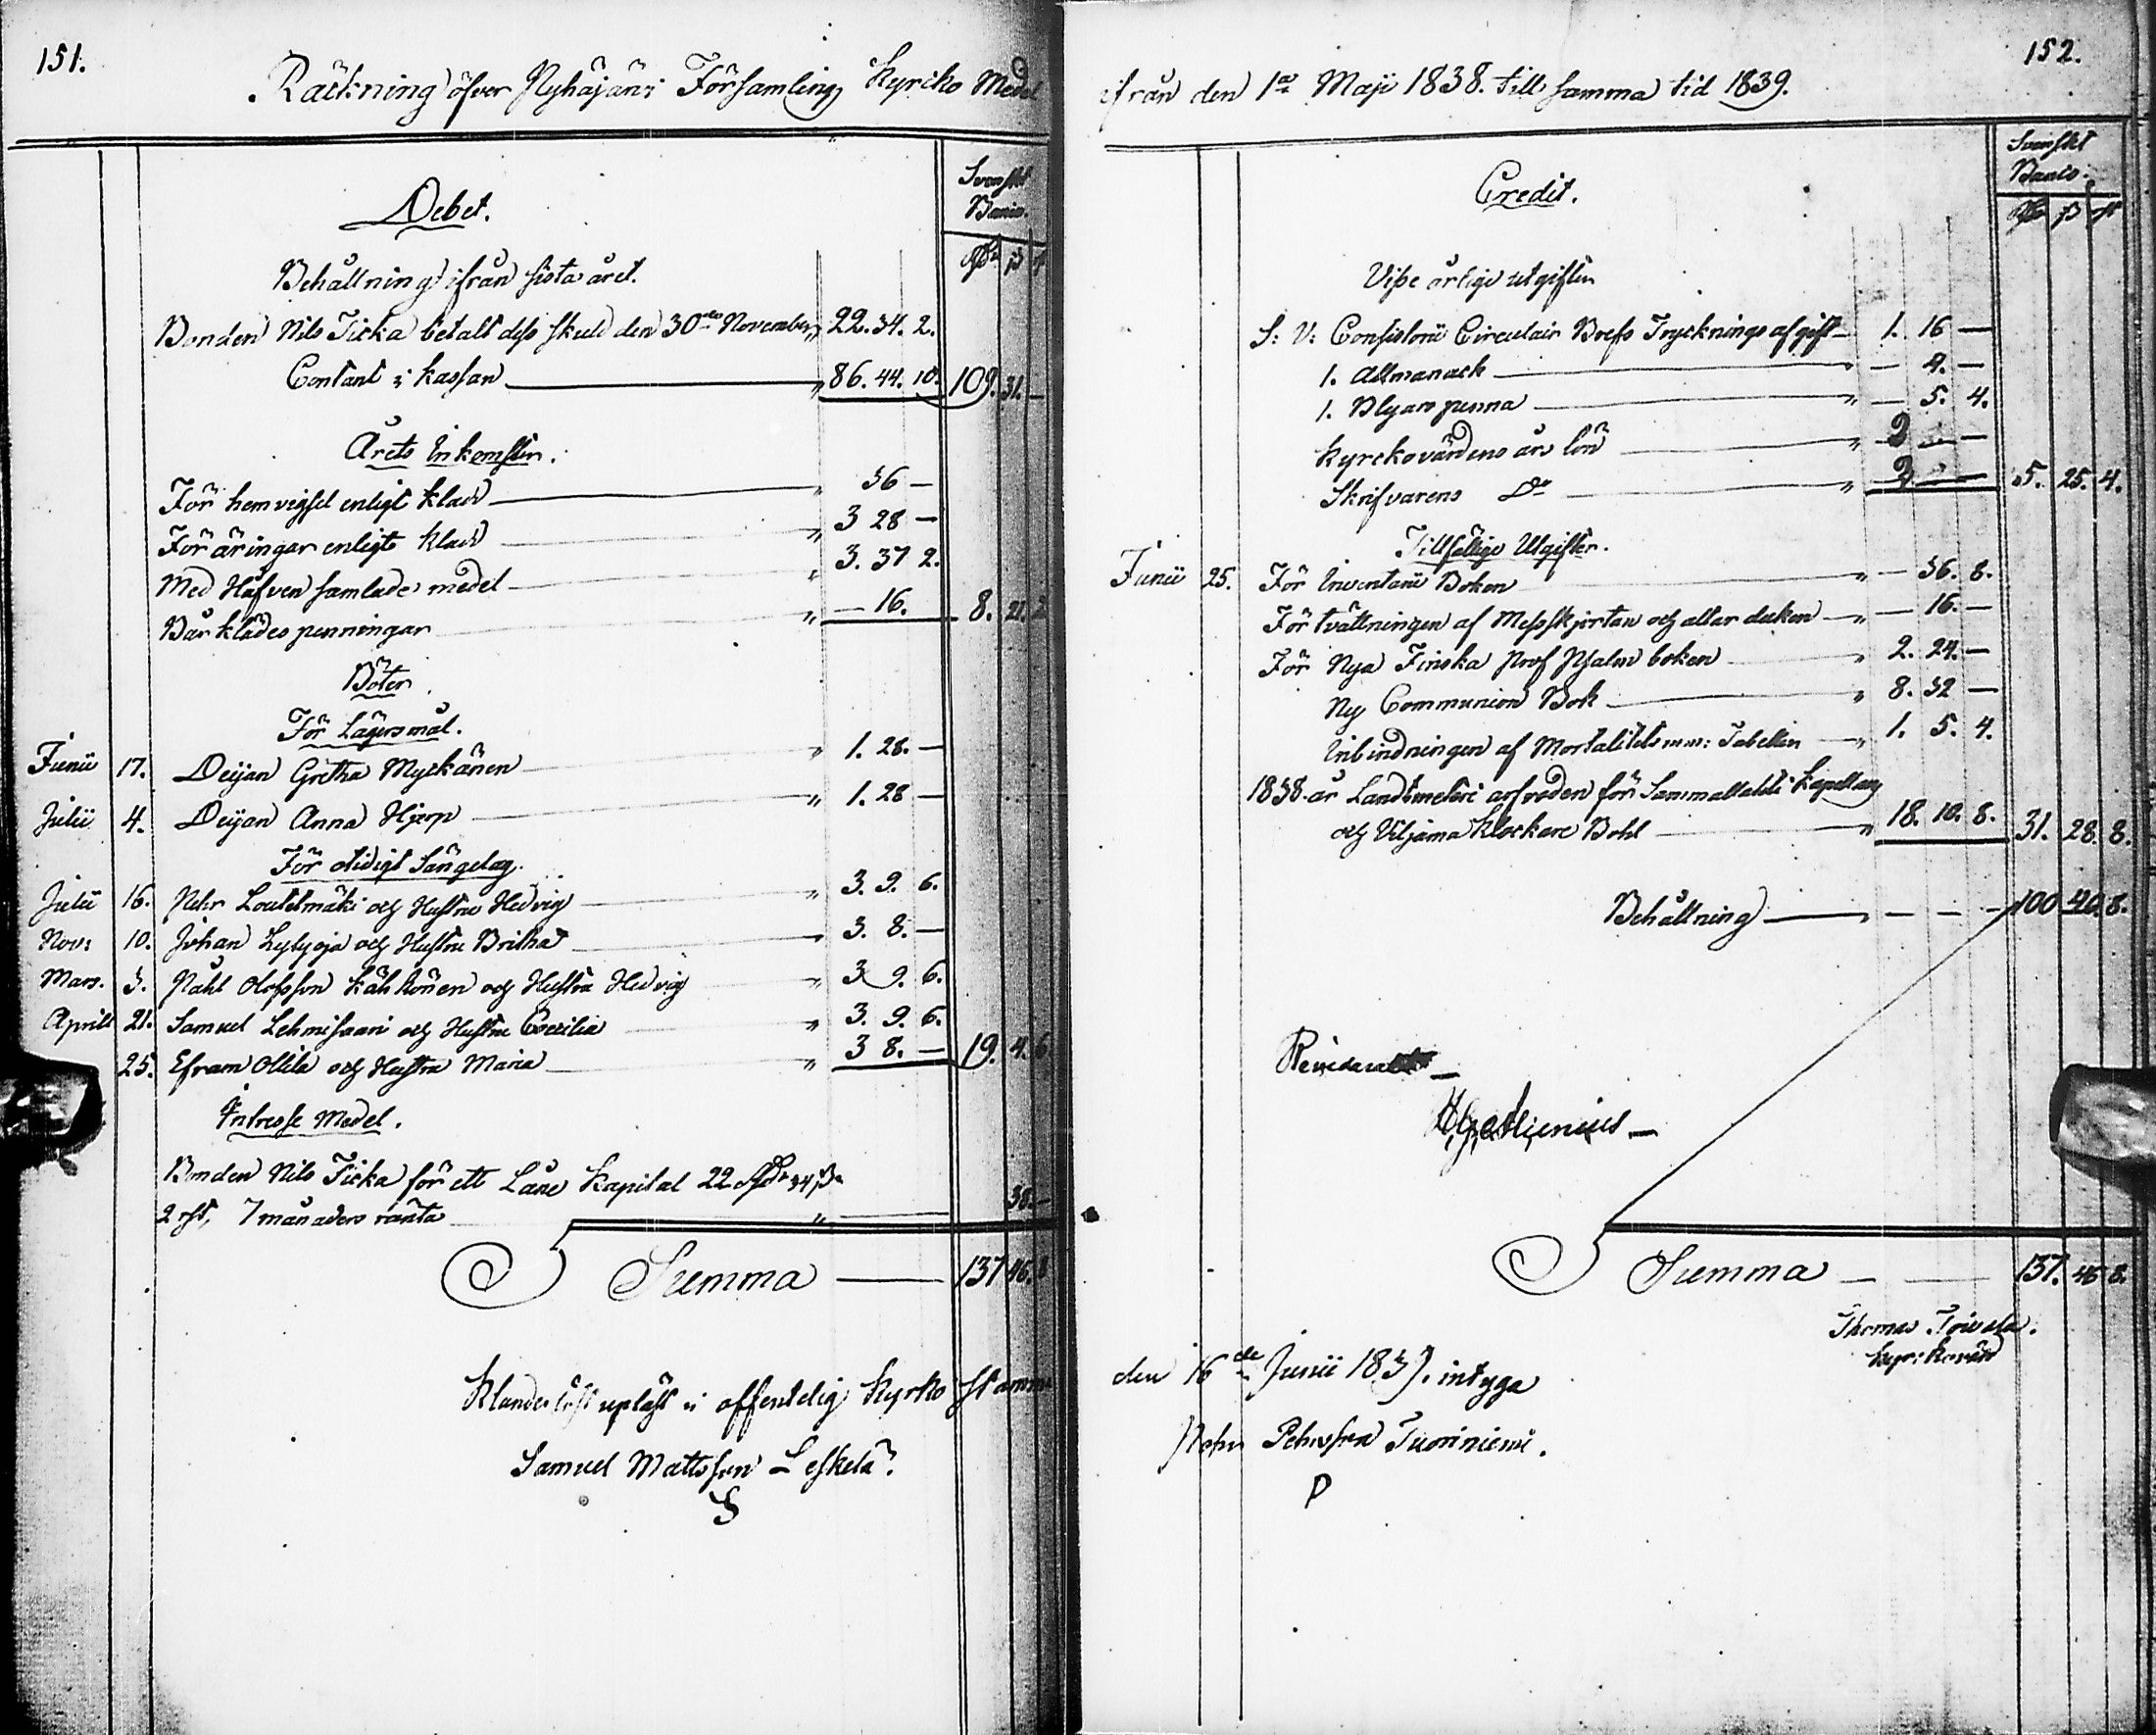 151.
Räckning öfver Pyhäjärvi Församlings Kyrcko Medel
Svenskt
Banco.
Debet.
Rd ß r
Behållning ifrån sista året.
Bonden Nils Ticka betalt dess skuld den 30de November " 22. 34. 2.
Contant i kassan " 86. 44. 10. 109. 31. —
Årets Inkomster.
För hemvigsel enligt klad " 36 —
För äringar enligt klad " 3 28 —
Med Håfven samlade medel " 3. 37 2.
Bårklädes penningar " — 16. 8. 21. 2
Böter
För Lägersmål.
Junii 17. Deijan Gretha Myckänen " 1. 28. —
Julii 4. Deijan Anna Hjerp " 1. 28 —
För otidigt Sängelag.
Julii 16. Pehr Loutelmäki och Hustru Hedvig " 3. 9. 6.
Nov: 10. Johan Lylyoja och Hustru Britha 3. 8. —
Mars. 3. Påhl Olofsson Kähkönen och Hustru Hedvig " 3 9. 6.
Aprill 21. Samuel Lehmisaari och Hustru Cecilia " 3. 9. 6.
25. Efram Ollila och Hustru Maria " 3 8. — 19. 4. 6
Intresse Medel.
Bonden Nils Ticka för ett Låne Kapital 22 Rdr 34 ß
2 rst, 7 månaders ränta " 38. —
Summa 137 46. 8
Klanderlöst upläst i offentelig Kyrko stamma
Samuel Mattsson Leskelä.
S
152.
ifrån den 1a Maji 1838. till samma tid 1839.
Svenskt
Banco.
Credit.
Rd ß r
Visse årlige utgifter
S: V: Consistorii Circulair Brefs Trycknings afgift — 1. 16 —
1. Allmanach — 4. —
1. Blyars penna " — 5. 4.
Kyrckovärdens års lön " 2 — —
Skrifvarens Do " 2 — — 5. 25. 4.
Tillfällige Utgifter.
Junii 25. För Inventarii Boken " — 36. 8.
För tvättningen af Messkjortan och altar duken " — 16. —
För Nya Finska Prof Psalm boken " 2. 24. —
Ny Communion Bok " 8. 32 —
Inbindningen af Mortalitets m.m: Tabeller " 1. 5. 4.
1838 års Landtmeteri arfvoden för Kapellans
och Viljama Klockare Bohl " 18. 10. 8. 31. 28. 8.
Behållning " — — — 100 40. 8.
Summa — 137. 46 8.
Thomas Toivola.
Kyrckovärd
den 16de Junii 1839. intyga
Pehr Pehrsson Tuoriniemi.
P